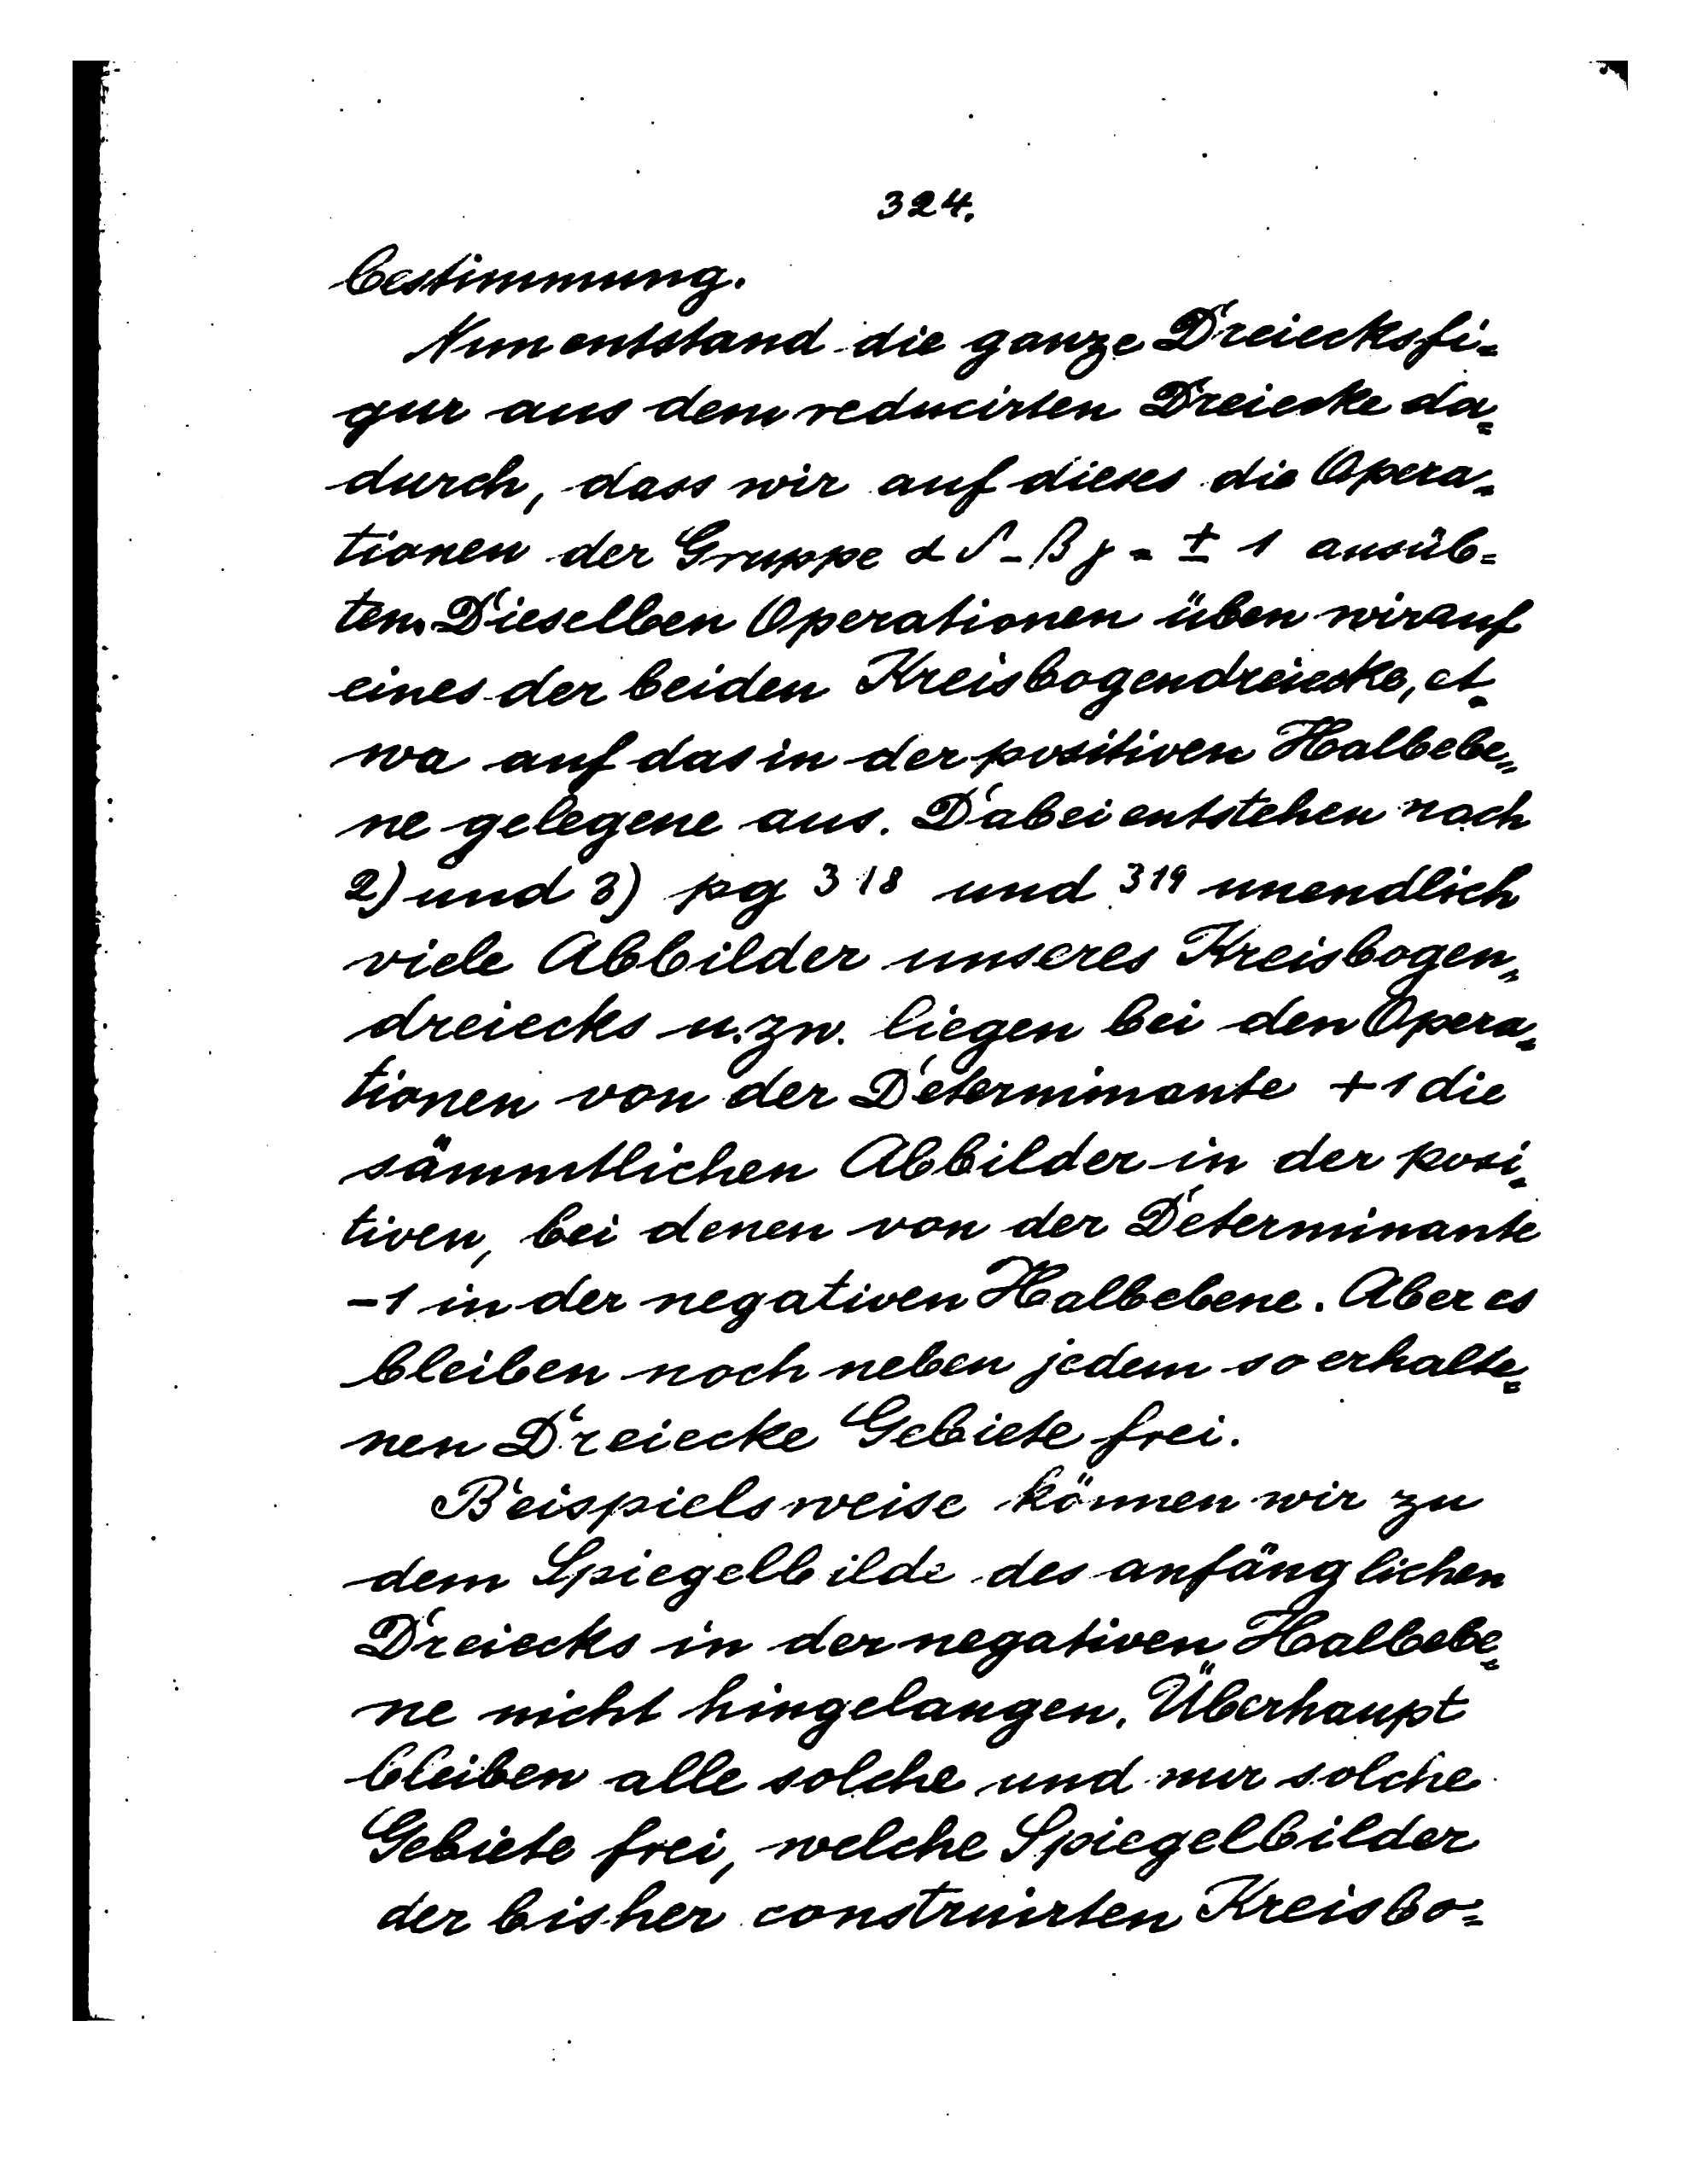 324.
bestimmung.
Nun entstand die ganze Dreiecksfi=
gur aus dem reducirten Dreiecke da=
durch, dass wir auf dieses die Opera=
tionen der Gruppe αδ-βγ = ± 1 ausüb=
ten. Dieselben Operationen üben wir auf
eines der beiden Kreisbogendreiecke, et=
wa auf das in der positiven Halbebe=
ne gelegene aus. Dabei entstehen nach
2) und 3) pg 318 und 319 unendlich
viele Abbilder unseres Kreisbogen=
dreiecks u.zw. liegen bei den Opera=
tionen von der Determinante +1 die
sämmtlichen Abbilder in der posi=
tiven, bei denen von der Determinante
-1 in der negativen Halbebene. Aber es
bleiben noch neben jedem so erhalte=
nen Dreiecke Gebiete frei.
Beispielsweise können wir zu
dem Spiegelbilde des anfänglichen
Dreiecks in der negativen Halbebe=
ne nicht hingelangen. Überhaupt
bleiben alle solche und nur solche
Gebiete frei, welche Spiegelbilder
der bisher construirten Kreisbo=